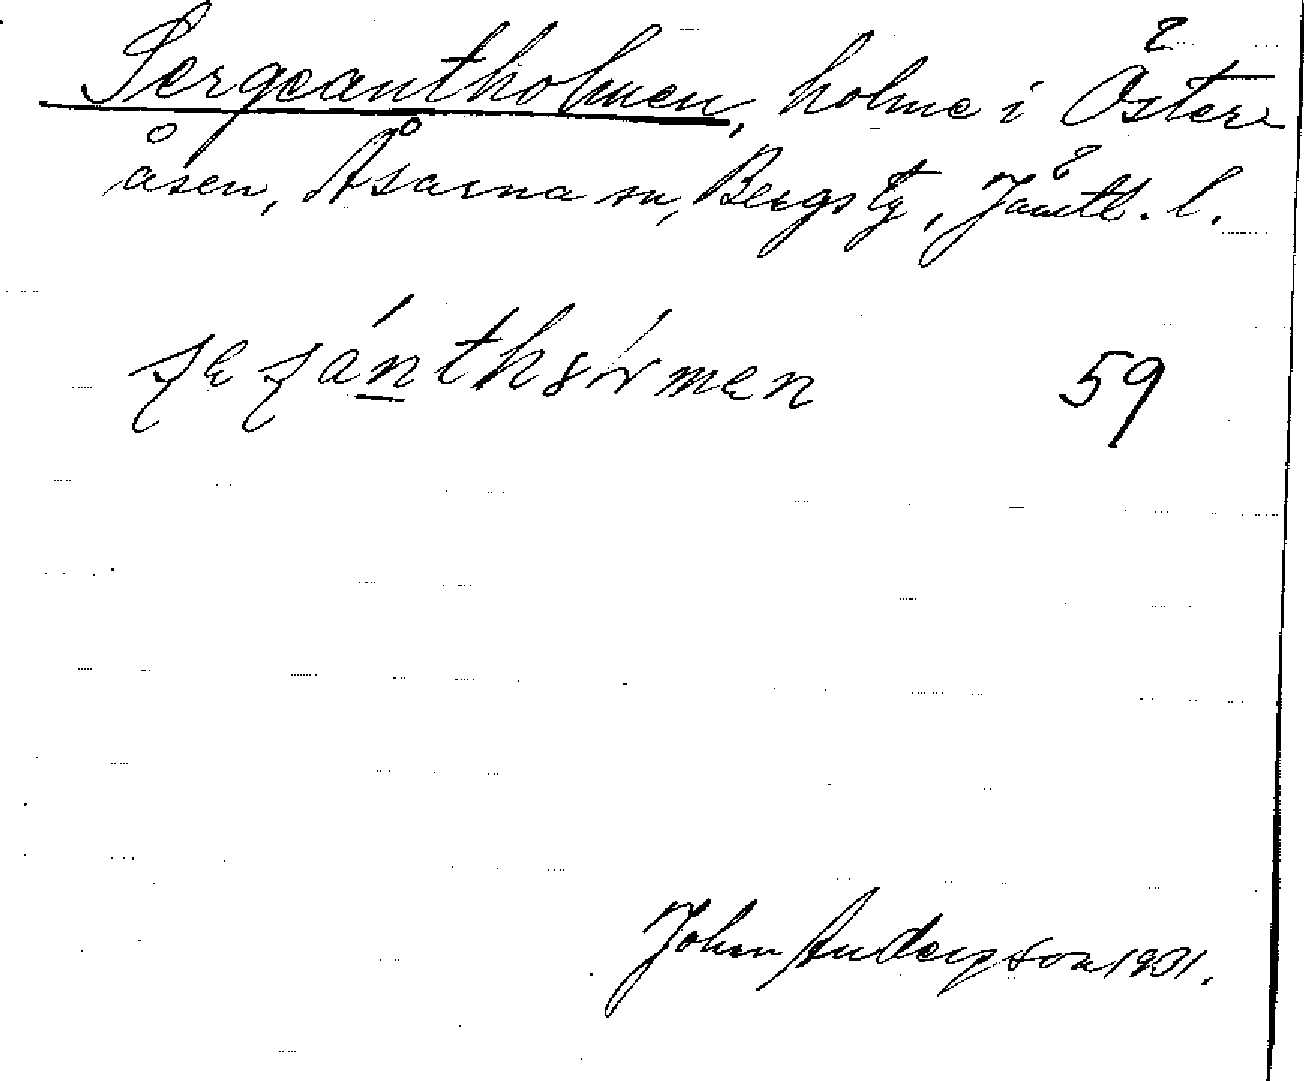 Sergeantholmen, holme i Öster-
åsen, Åsarna sn, Bergs tg, Jämtl. l.
59
John Anderson 1931.